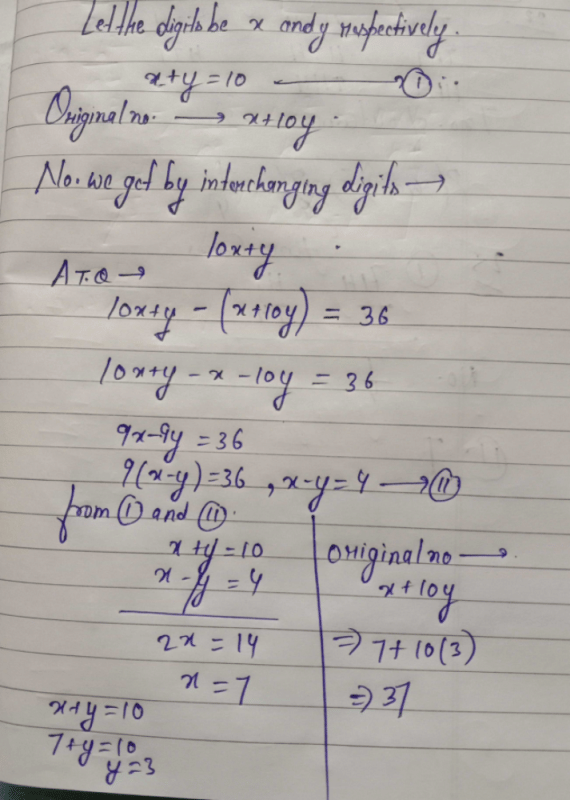 Let the digits be x and y respectively.
x+y=10 → (I)
Original no. → x+10y
No. we get by interchanging digits →
10x+y
A.T.Q →
10x+y - (x+10y) = 36
10x+y - x - 10y = 36
9x-9y = 36
9(x-y)=36 , x-y=4 → (II)
from (I) and (II).
x+y=10
x-y=4
2x = 14
x = 7
x+y=10
7+y=10
y=3
original no →
x+10y
⇒ 7+10(3)
⇒ 37